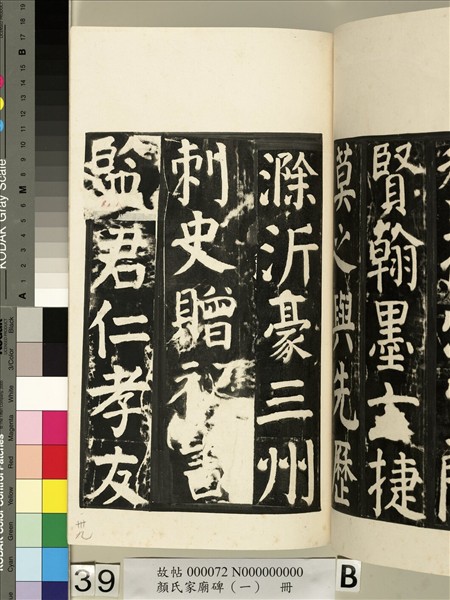 賢翰墨捷
莫之與先歷
滁沂豪三州
刺史贈祕書
監君仁孝友
卅九
39
故帖 000072 N000000000
顏氏家廟碑（一） 冊
B
KODAK Gray Scale
A 1 2 3 4 5 6 M 8 9 10 11 12 13 14 15 B 17 18 19
KODAK Color Control Patches
Blue
Cyan
Green
Yellow
Red
Magenta
White
3/Color
Black